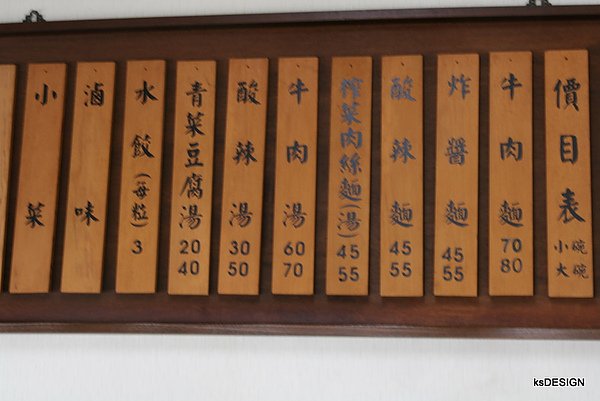 價目表
小碗
大碗
牛肉麵
70
80
炸醬麵
45
55
酸辣麵
45
55
榨菜肉絲麵(湯)
45
55
牛肉湯
60
70
酸辣湯
30
50
青菜豆腐湯
20
40
水餃(每粒)
3
滷味
小菜
ksDESIGN